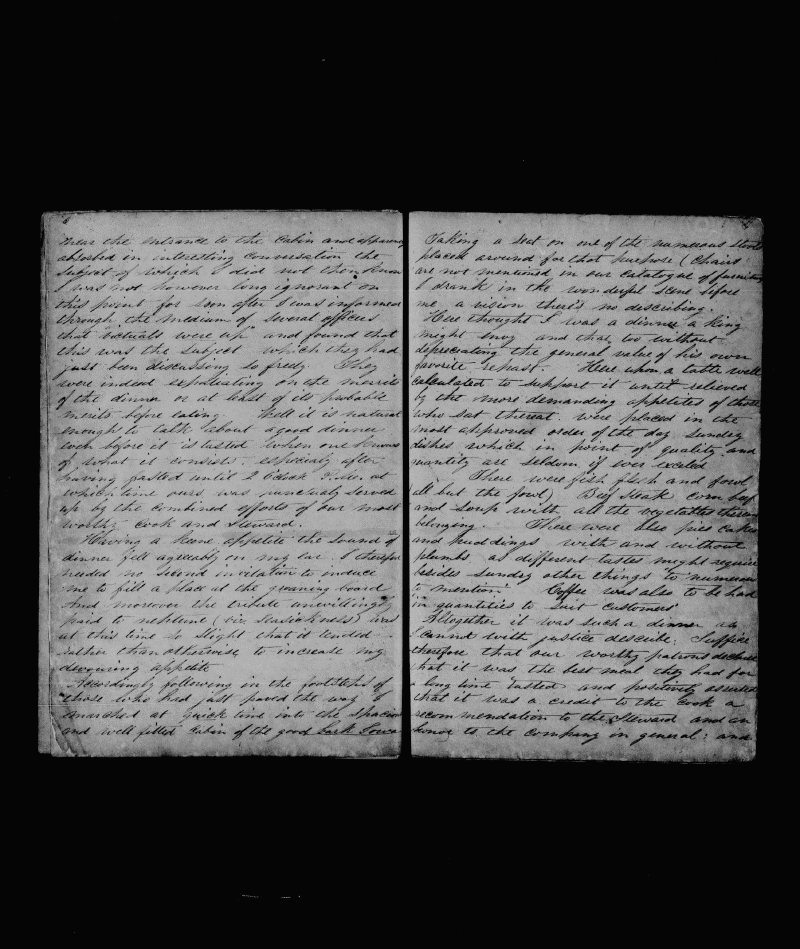 near the entrance to the cabin and apparently
absorbed in interesting conversation the
subject of which I did not then know
I was not however long ignorant on
this point for soon after I was informed
through the medium of several officers
that "victuals were up" and found that
this was the subject which they had
just been discussing so freely. They
were indeed expatiating on the merits
of the dinner or at least of its probable
merits before eating. Well it is natural
enough to talk about a good dinner
even before it is tasted when one knows
of what it consists. especialy after
having fasted until 2 O'clock P.M. at
which time ours was punctualy served
up by the combined efforts of our most
worthy cook and steward.
Having a keene appetite the sound of
dinner fell agreeably on my ear. I therefore
needed no second invitation to induce
me to fill a place at the groaning board
And moreover the tribute unwillingly
paid to neptune (viz. seasickness) was
at this time so slight that it tended
rather than otherwise to increase my
devouring appetite
Accordingly following in the footsteps of
those who had just paved the way I
marched at quick time into the spacious
and well filled cabin of the good bark Iowa
Taking a seat on one of the numerous stools
placed around for that purpose (chairs
are not mentioned in our catalogue of furniture
I drank in the wonderful scene before
me a vision there's no describing.
Here thought I was a dinner a king
might envy and that too without
depreciating the general value of his own
favorite repast. Here upon a table well
calculated to support it until relieved
by the more demanding appetites of those
who sat thereat were placed in the
most approved order of the day sundry
dishes which in point of quality and
quantity are seldom if ever exceled
There were fish flesh and fowl
(all but the fowl) Beef steak corn beef
and soup with all the vegetables thereto
belonging. There were also pies cakes
and puddings with and without
plumbs as different tastes might require
besides sundry other things "to numerous
to mention". Coffee was also to be had
"in quantities to suit customers"
Altogether it was such a dinner as
I cannot with justice describe. Suffice
therefore that our worthy patrons declared
that it was the best meal they had for
a long time tasted and positively asserted
that it was a credit to the cook a
recommendation to the Steward and an
honor to the company in general: and